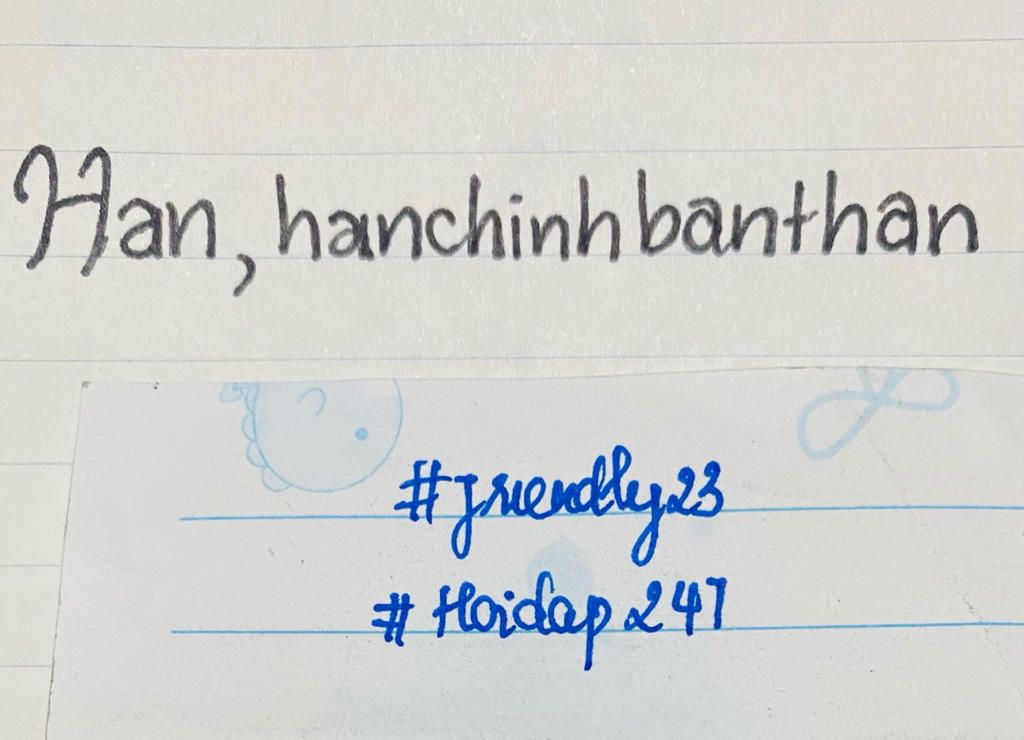 Han, hanchinhbanthan
#friendly23
#Hoidap 247